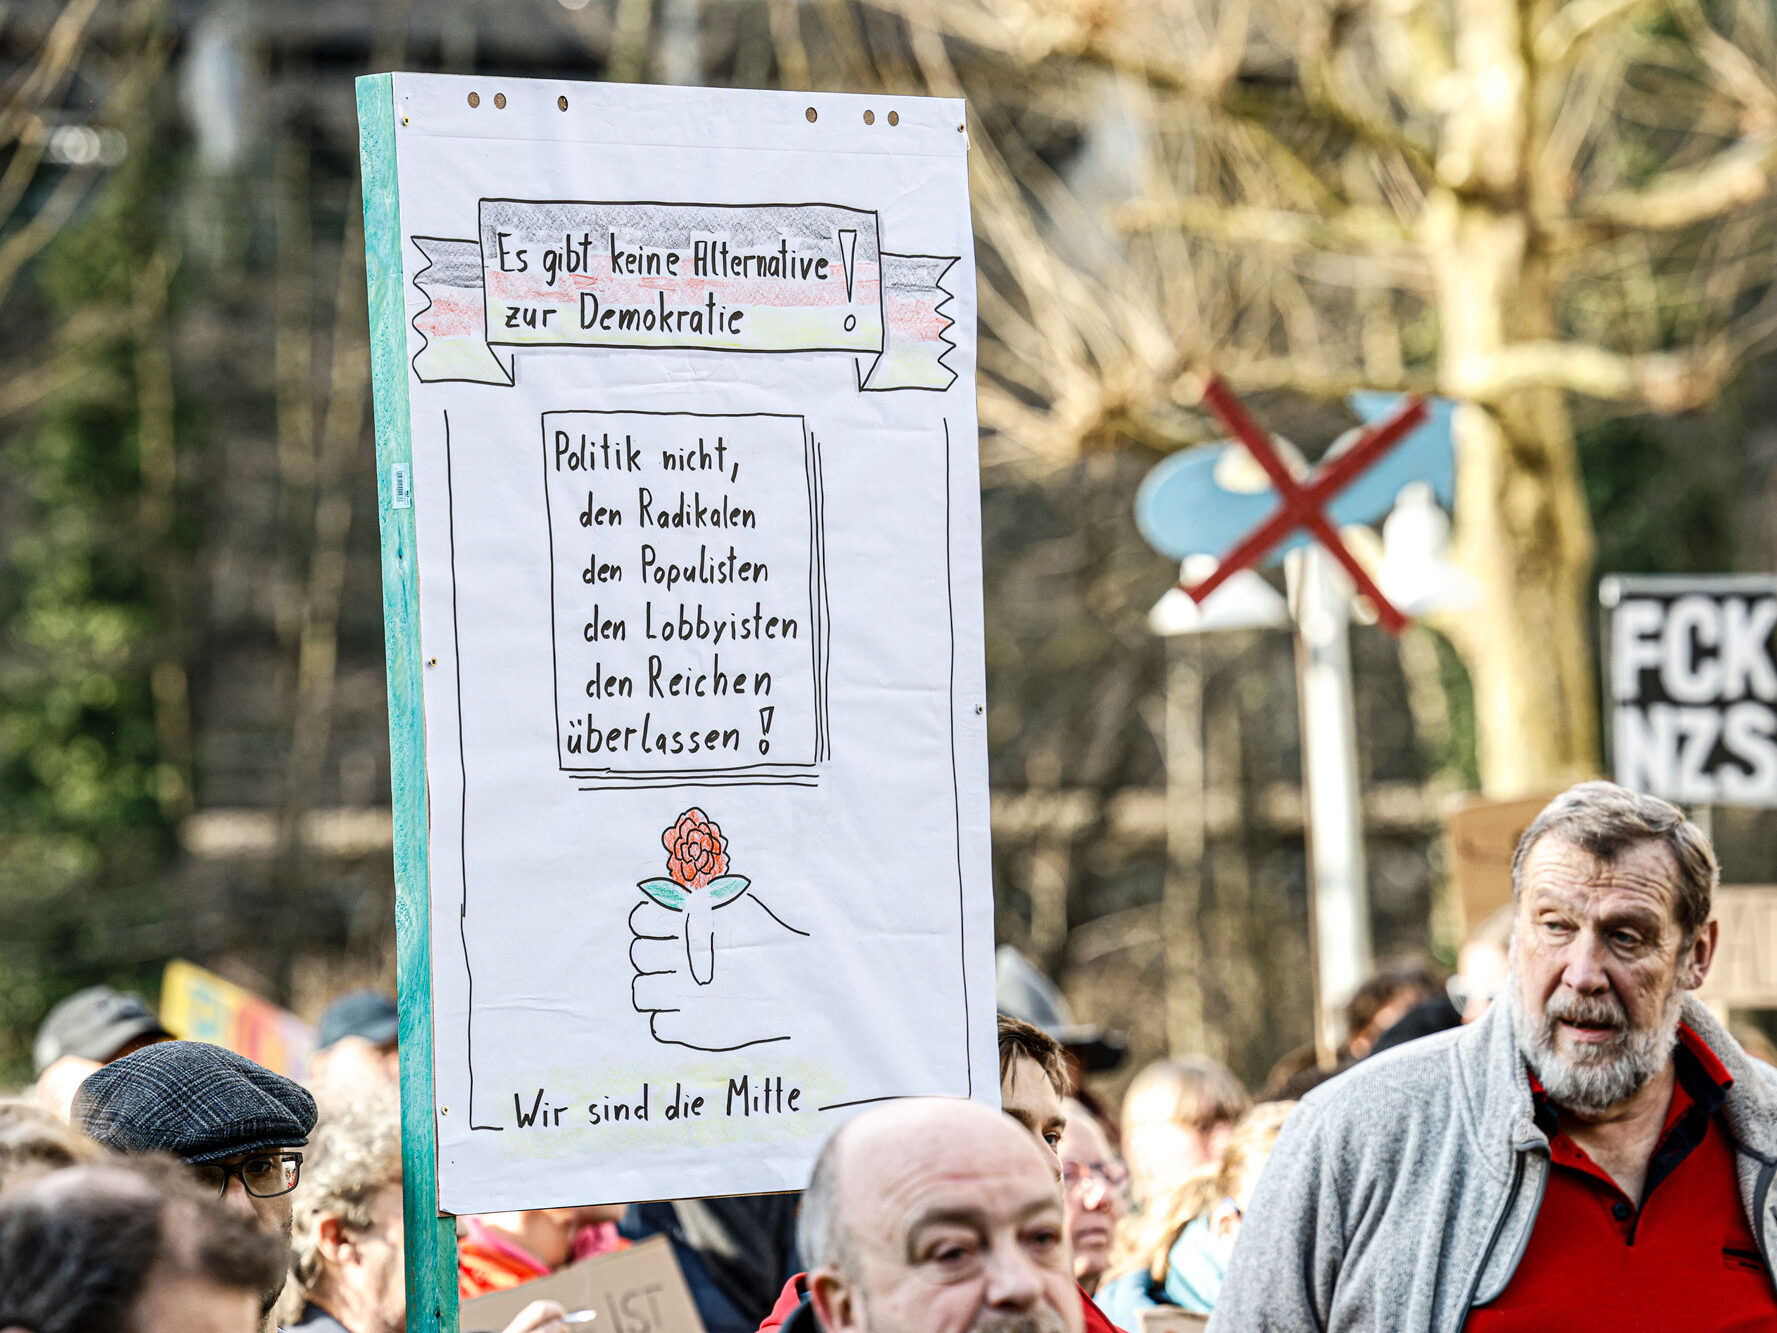 Es gibt keine Alternative!
zur Demokratie
Politik nicht,
den Radikalen
den Populisten
den Lobbyisten
den Reichen
überlassen!
Wir sind die Mitte
FCK
NZS
IST